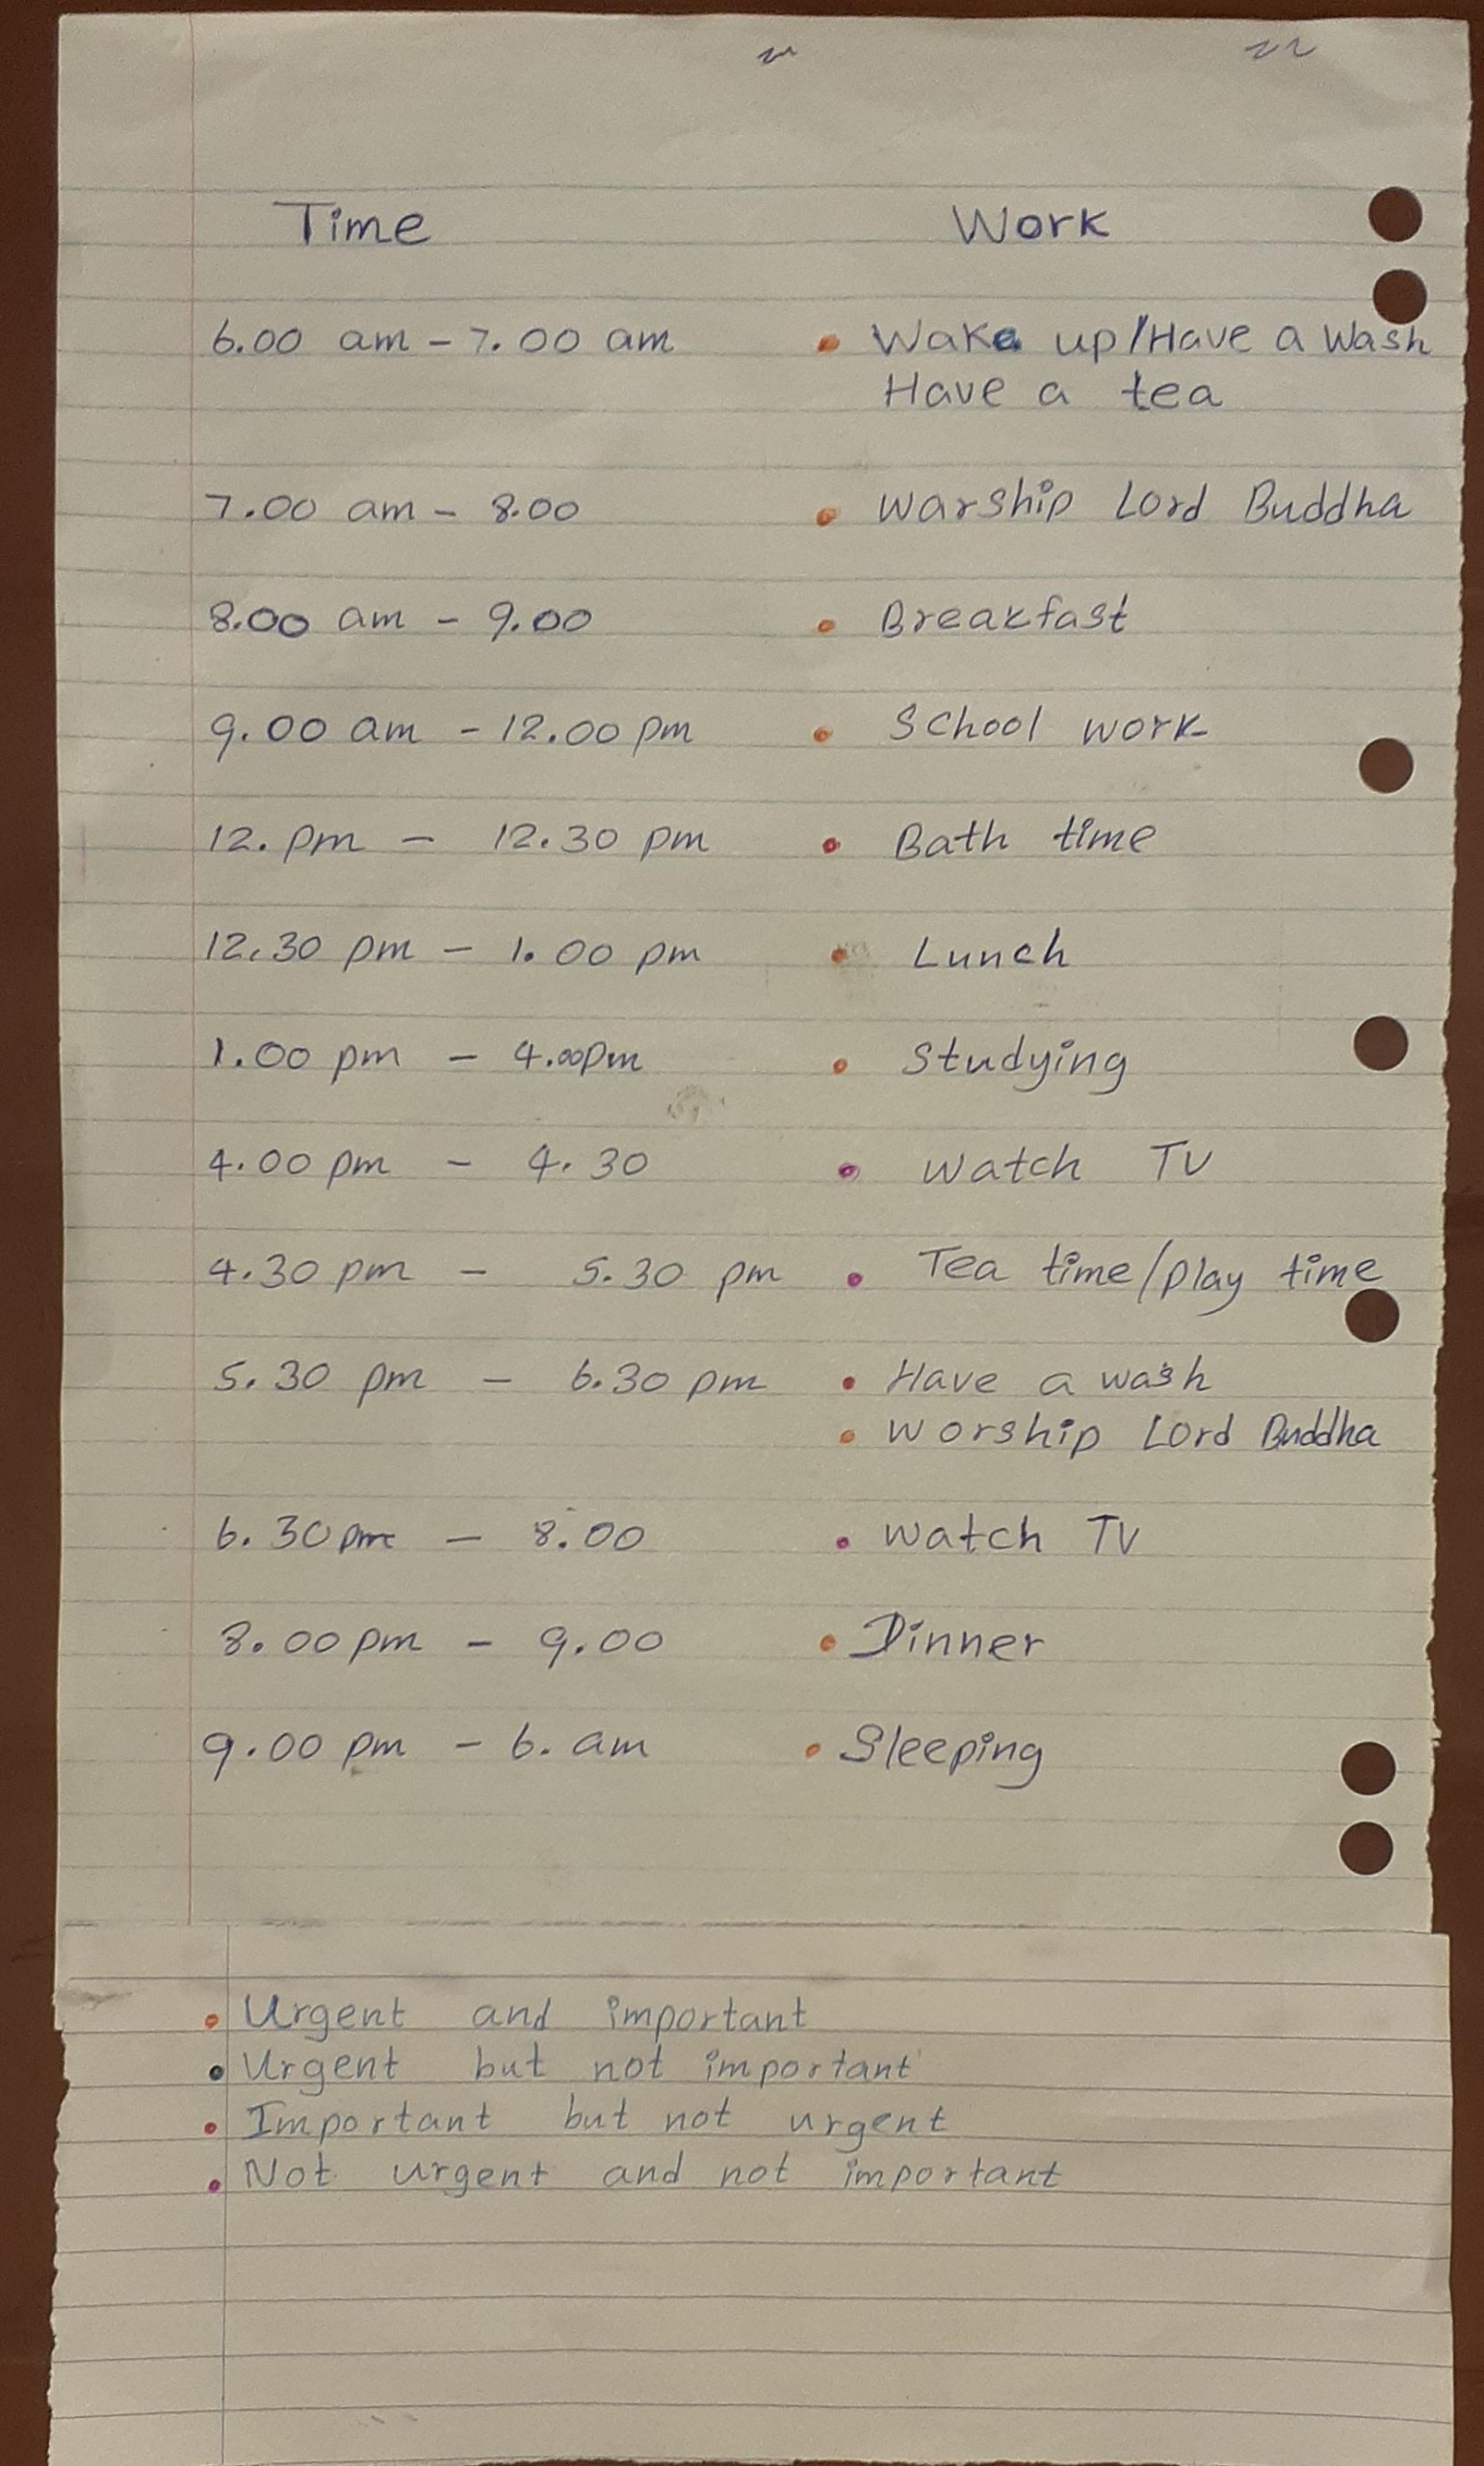 Time Work
6.00 am - 7.00 am • Wake up/Have a Wash
Have a tea
7.00 am - 8.00 • Warship Lord Buddha
8.00 am - 9.00 • Breakfast
9.00 am - 12.00 pm • School work
12. pm - 12.30 pm • Bath time
12.30 pm - 1.00 pm • Lunch
1.00 pm - 4.00pm • Studying
4.00 pm - 4.30 • Watch TV
4.30 pm - 5.30 pm • Tea time/play time
5.30 pm - 6.30 pm • Have a wash
• Worship Lord Buddha
6.30pm - 8.00 • Watch TV
8.00pm - 9.00 • Dinner
9.00 pm - 6. am • Sleeping
• Urgent and important
• Urgent but not important
• Important but not urgent
• Not urgent and not important